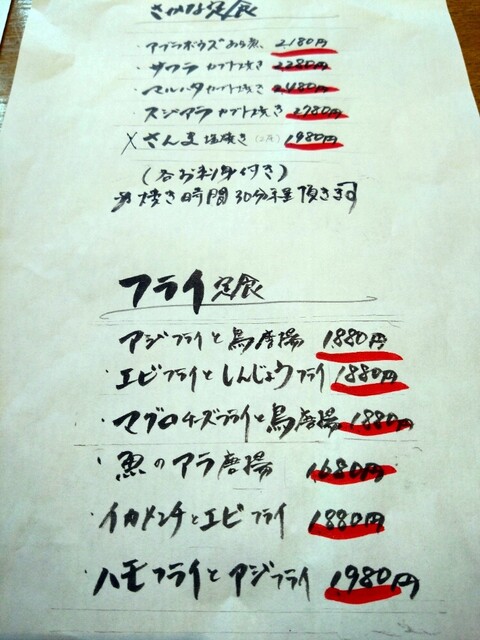 さかな定食
・アブラボウズあら煮 2,180円
・サワラカブト焼き 2,280円
・マルハタカブト焼き 2,480円
・スジアラカブト焼き 2,780円
×さんま塩焼き 1,980円
(各お刺身付き)
※焼き時間30分程頂きます
フライ定食
アジフライと鳥唐揚 1,880円
・エビフライとしんじょうフライ 1,880円
・マグロチーズフライと鳥唐揚 1,880円
・魚のアラ唐揚 1,680円
・イカメンチとエビフライ 1,880円
・ハモフライとアジフライ 1,980円